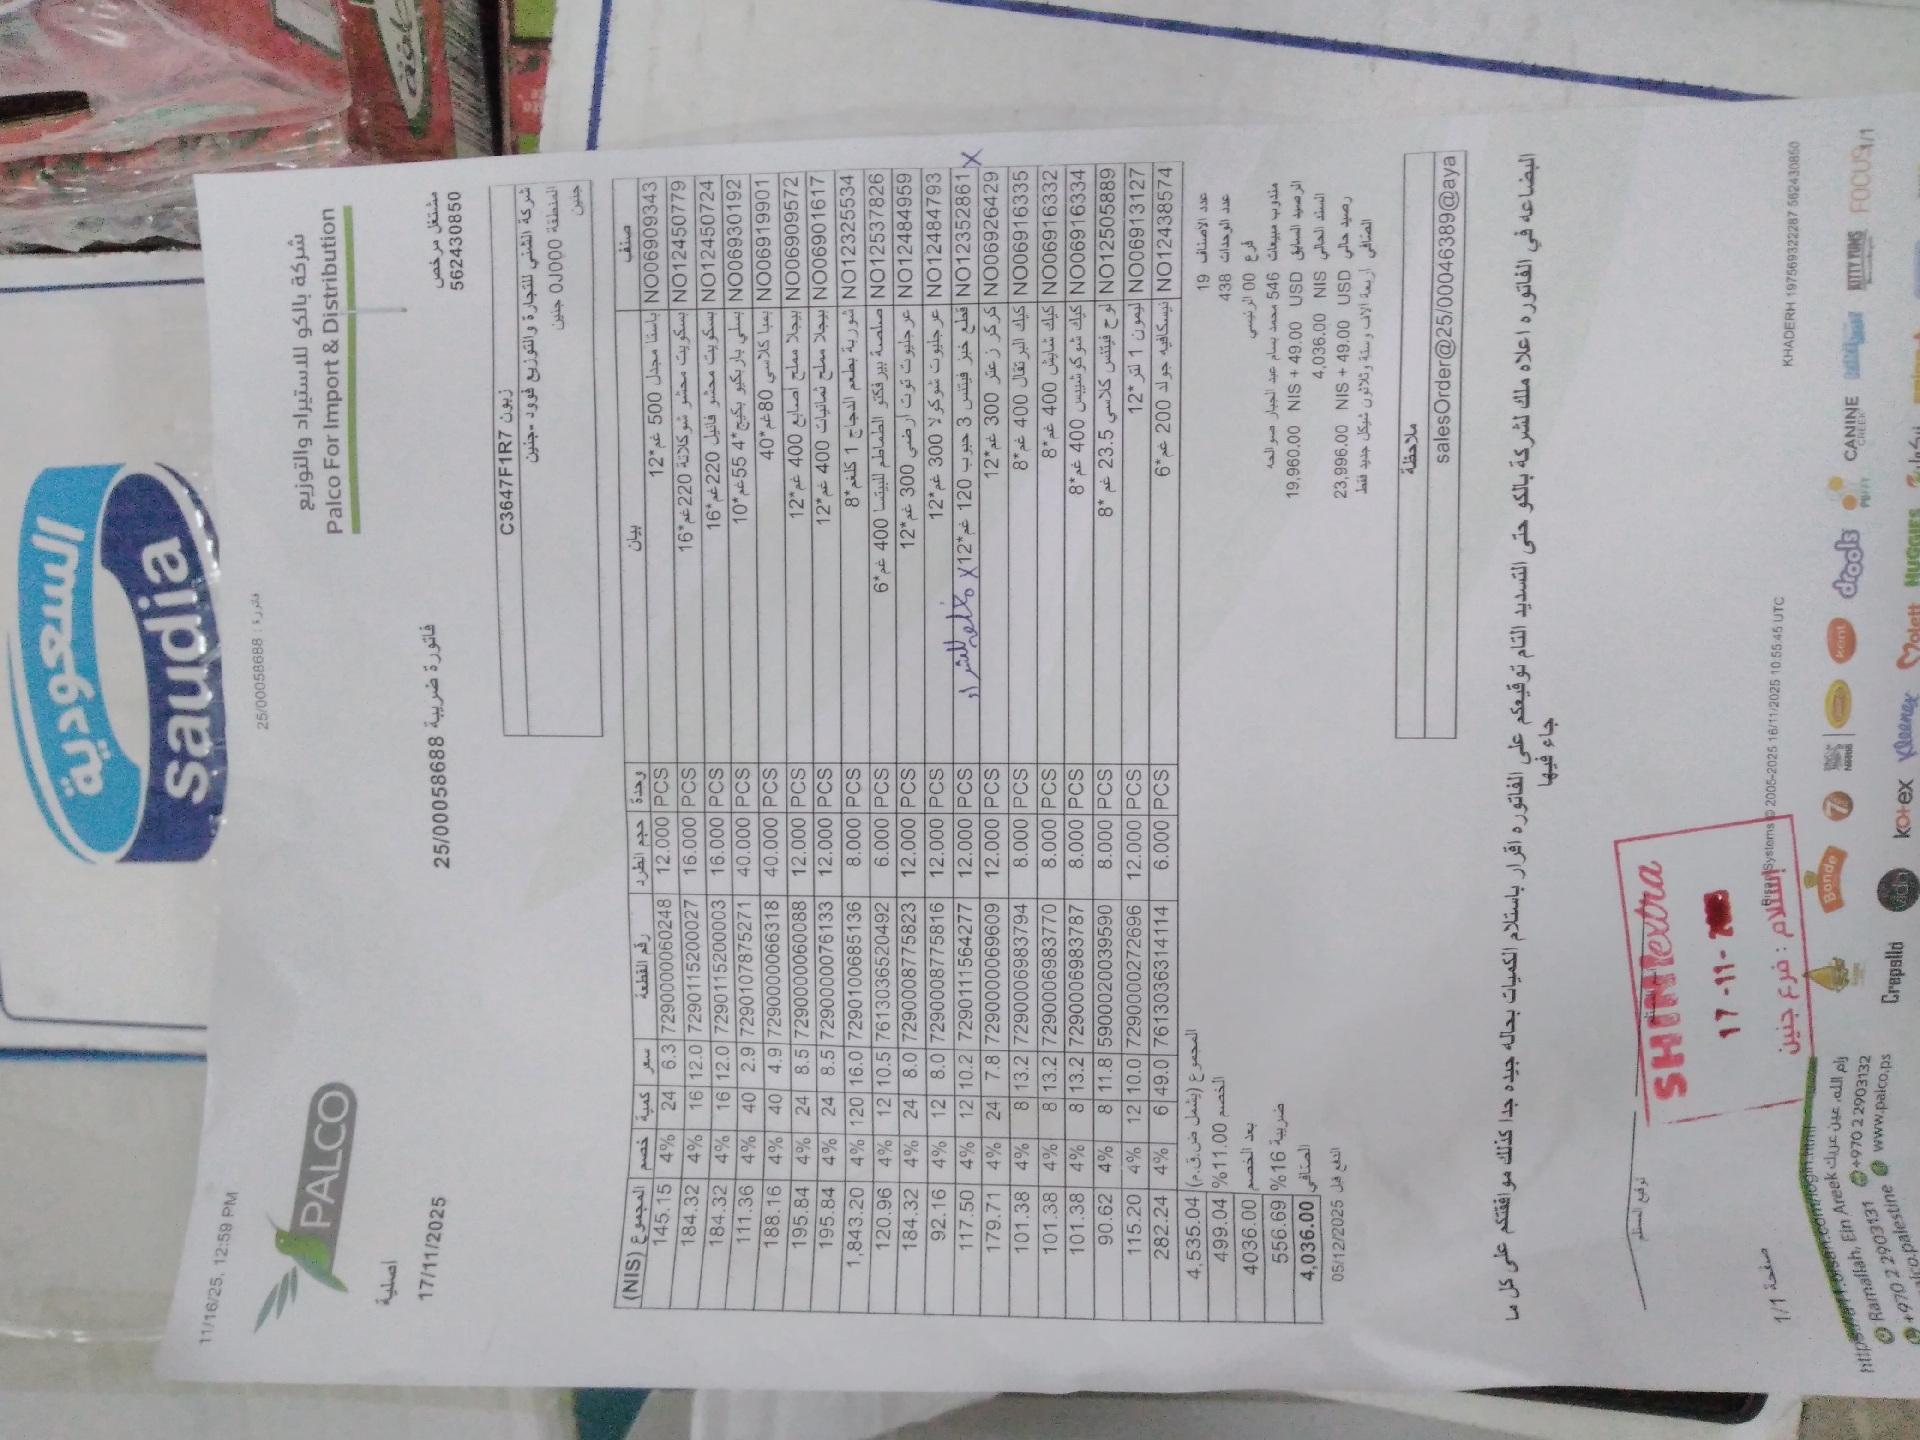 السعودية
saudia
11/16/25, 12:59 PM
فاتورة : 25/00058688
PALCO
شركة بالكو للاستيراد والتوزيع
Palco For Import & Distribution
اصلية
مشتغل مرخص
17/11/2025
فاتورة ضريبية 25/00058688
562430850
زبون C3647F1R7
شركة الشني للتجارة والتوزيع فوود -جنين
المنطقة 0J000 جنين
جنين
صنف بيان وحدة حجم الطرد رقم القطعة سعر كمية خصم المجموع (NIS)
NO06909343 باستا مجدل 500 غم*12 PCS 12.000 7290000060248 6.3 24 4% 145.15
NO12450779 بسكويت محشو شوكلاتة 220غم*16 PCS 16.000 7290115200027 12.0 16 4% 184.32
NO12450724 بسكويت محشو فانيل 220غم*16 PCS 16.000 7290115200003 12.0 16 4% 184.32
NO06930192 بسلي باربكيو بكيج*4 55غم*10 PCS 40.000 7290107875271 2.9 40 4% 111.36
NO06919901 بمبا كلاسي 80غم*40 PCS 40.000 7290000066318 4.9 40 4% 188.16
NO06909572 بيجلا مملح اصابع 400 غم*12 PCS 12.000 7290000060088 8.5 24 4% 195.84
NO06901617 بيجلا مملح ثمانيات 400 غم*12 PCS 12.000 7290000076133 8.5 24 4% 195.84
NO12325534 شوربة بطعم الدجاج 1 كلغم*8 PCS 8.000 7290100685136 16.0 120 4% 1,843.20
NO12537826 صلصة بيرفكتو الطماطم للبيتسا 400 غم*6 PCS 6.000 7613036520492 10.5 12 4% 120.96
NO12484959 عرجليوت توت ارضي 300 غم*12 PCS 12.000 7290008775823 8.0 24 4% 184.32
NO12484793 عرجليوت شوكولا 300 غم*12 PCS 12.000 7290008775816 8.0 12 4% 92.16
X NO12352861 قطع خبز فيتنس 3 حبوب 120 غم*12 X PCS 12.000 7290111564277 10.2 12 4% 117.50
NO06926429 كركر زعتر 300 غم*12 PCS 12.000 7290000069609 7.8 24 4% 179.71
NO06916335 كيك البرتقال 400 غم*8 PCS 8.000 7290006983794 13.2 8 4% 101.38
NO06916332 كيك شايش 400 غم*8 PCS 8.000 7290006983770 13.2 8 4% 101.38
NO06916334 كيك شوكوشيبس 400 غم*8 PCS 8.000 7290006983787 13.2 8 4% 101.38
NO12505889 لوح فيتنس كلاسي 23.5 غم *8 PCS 8.000 5900020039590 11.8 8 4% 90.62
NO06913127 ليمون 1 لتر*12 PCS 12.000 7290000272696 10.0 12 4% 115.20
NO12438574 نيسكافيه جولد 200 غم*6 PCS 6.000 7613036314114 49.0 6 4% 282.24
المجموع (يشمل ض.ق.م) 4,535.04
الخصم 11.00% 499.04
بعد الخصم 4036.00
ضريبة 16% 556.69
الصافي 4,036.00
الدفع قبل 05/12/2025
عدد الاصناف 19
عدد الوحدات 438
فرع 00 الرئيسي
مندوب مبيعات 546 محمد بسام عبد الجبار صوالحه
الرصيد السابق 19,960.00 NIS + 49.00 USD
السند الحالي 4,036.00 NIS
رصيد حالي 23,996.00 NIS + 49.00 USD
الصافي اربعة الاف وستة وثلاثون شيكل جديد فقط
ملاحظة
salesOrder@25/00046389@aya
البضاعه في الفاتوره اعلاه ملك لشركة بالكو حتى التسديد التام توقيعكم على الفاتوره اقرار باستلام الكميات بحاله جيده جدا كذلك موافقتكم على كل ما
جاء فيها
توقيع المستلم
SHINIextra
17 -11-
إستلام : فرع جنين
صفحة 1/1
Bisan Systems © 2005-2025 16/11/2025 10:55:45 UTC
KHADERH 197569322287 562430850
1/1
Bonde
kent
drools
PUFFY
CANINE CREEK
KITTY YUMS
FOCUS
Crepalld
kotex
Kleenex
Molett
HUGGIES
Ramallah, Ein Areek رام الله، عين عريك
+970 2 2903131
+970 2 2903132
www.palco.ps